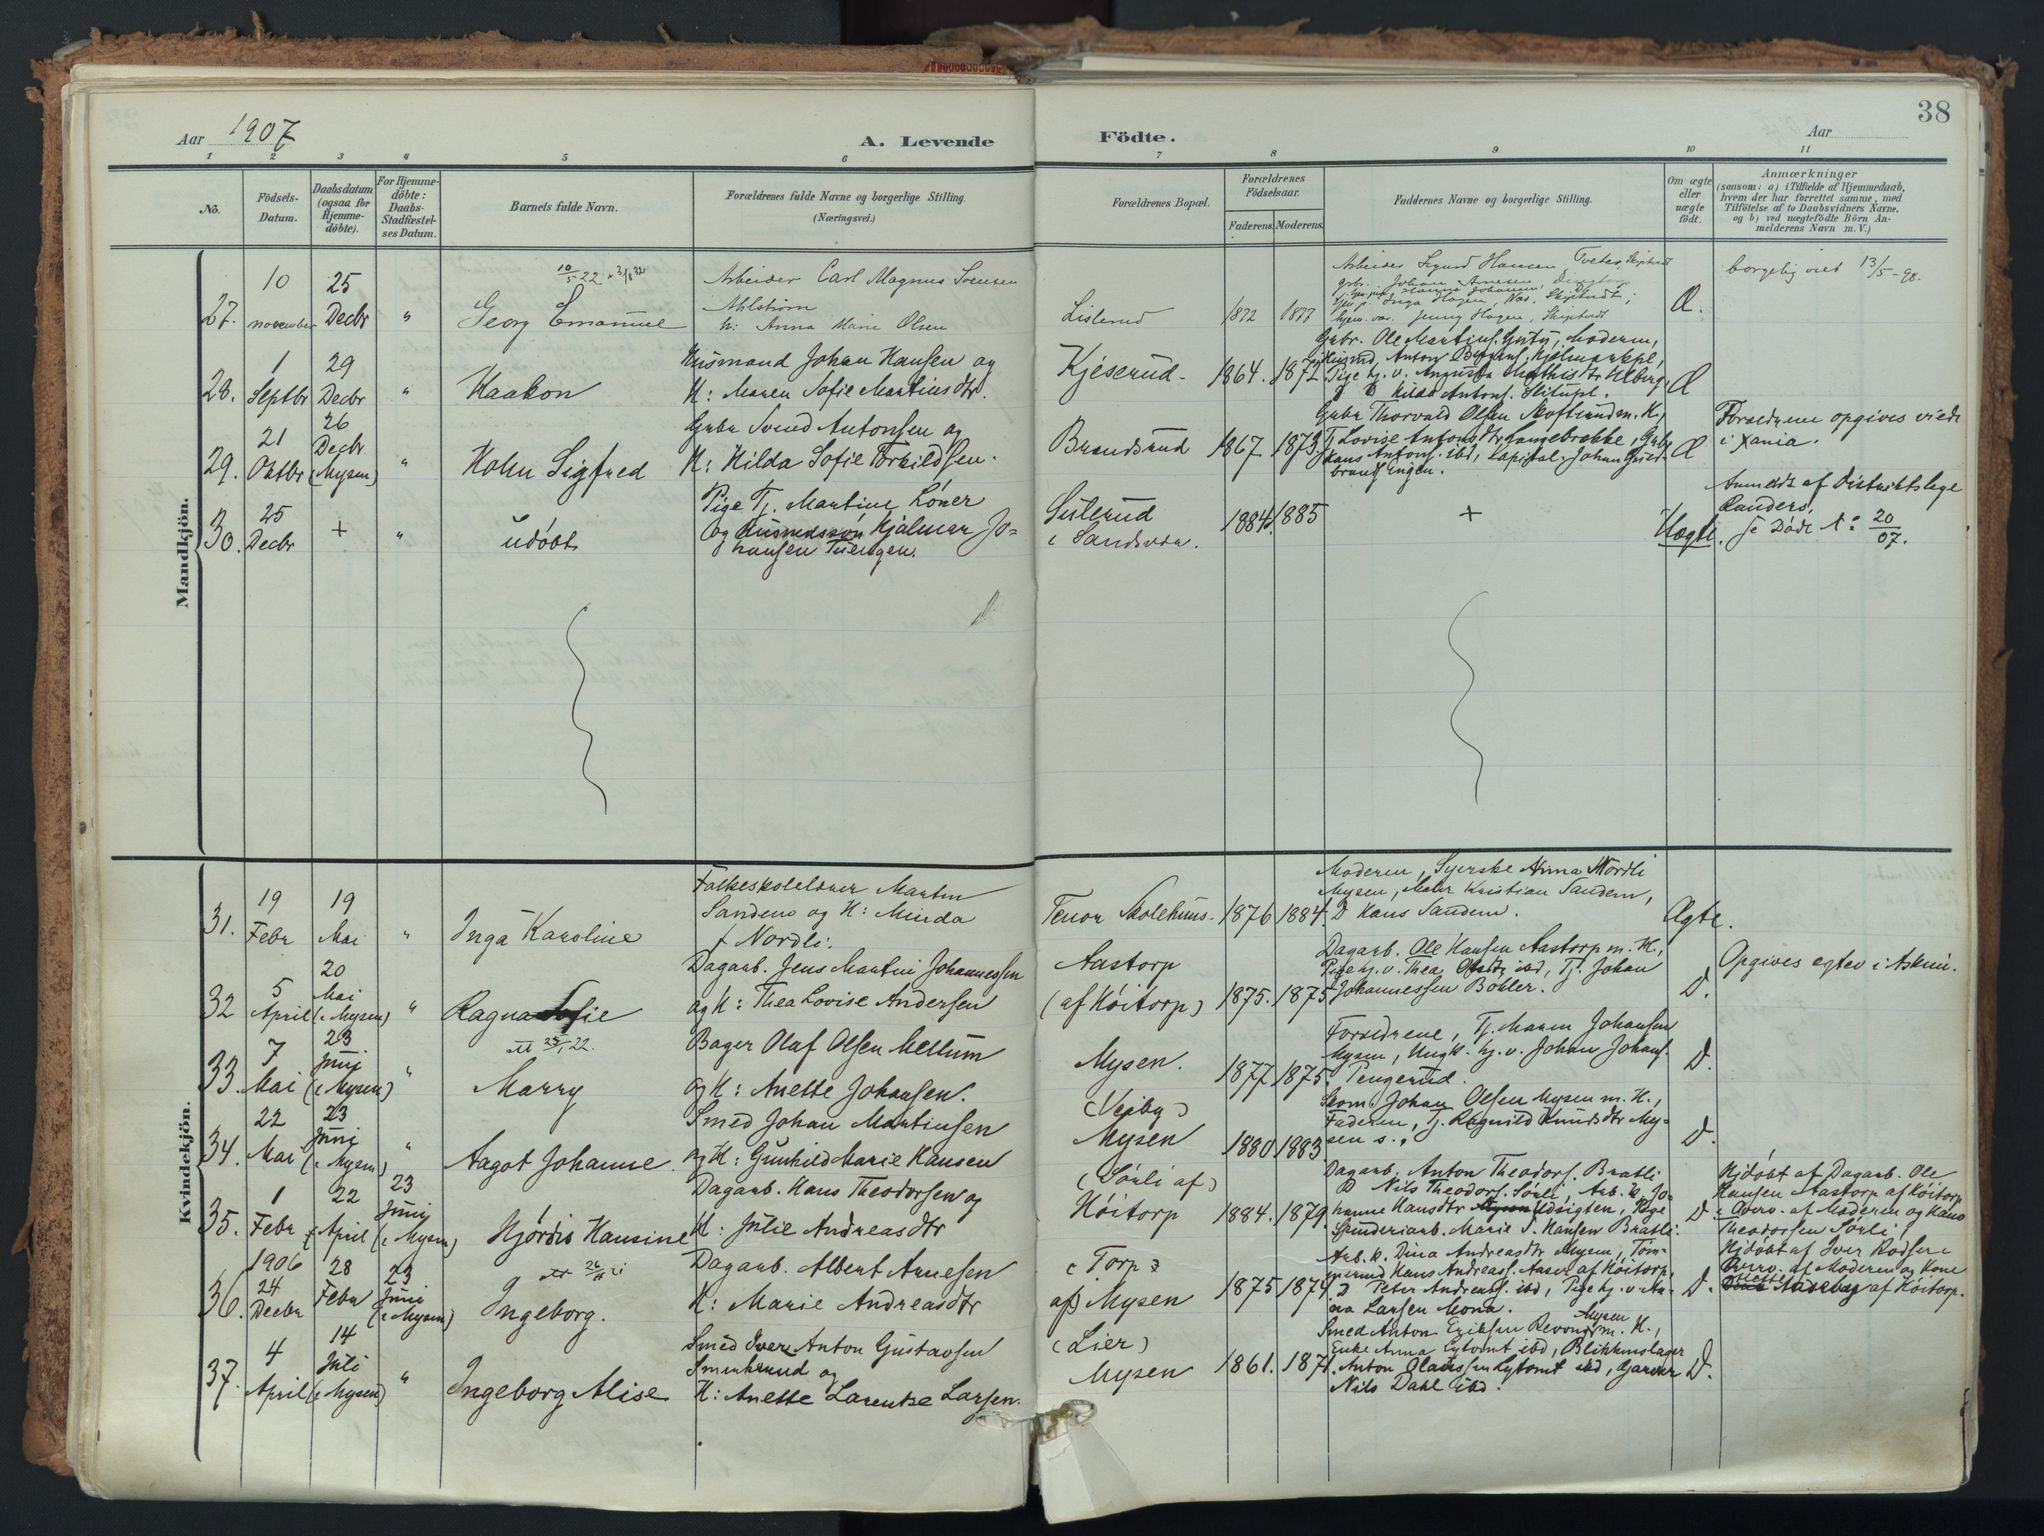 38
Aar 1907
A. Levende
Födte.
Aar
1 2 3 4 5 6 7 8 9 10 11
No.
Födsels-
Datum.
Daabsdatum
(ogsaa for
Hjemme-
döbte).
For Hjemme-
döbte:
Daabs-
Stadfæstel-
ses Datum.
Barnets fulde Navn.
Forældrenes fulde Navne og borgerlige Stilling.
(Næringsvei.)
Forældrenes Bopæl.
Forældrenes
Födselsaar.
Faderens. Moderens.
Faddernes Navne og borgerlige Stilling.
Om ægte
eller
uægte
födt.
Anmærkninger
(saasom: a) i Tilfælde af Hjemmedaab,
hvem der har forrettet samme, med
Tilföielse af to Daabsvidners Navne,
og b) ved uægtefödte Börn An-
melderens Navn m. V.)
Mandkjön.
27.
10
november
25
Decbr
"
10/5 22
Georg Emanuel
Arbeider Carl Magnus Sørensen
Ahlstrøm
H: Anna Marie Olsen
Listerud
1872
1877
Arbeider Sigurd Hansen
Inga Hagen, Næs,
Jenny Hagen,
Æ.
borgelig viet 13/5-98.
28.
1
Septbr
29
Decbr
"
Haakon
Husmand Johan Hansen og
H: Maren Sofie Martinsdtr.
Kjeserud
1864.
1872
Gbr. Ole Martins.
Hilda Antons.
Æ
29.
21
Oktbr
26
Decbr
(Mysen)
"
Kohn Sigfred
Gbr Svend Antonsen og
H: Hilda Sofie Torkildsen.
Brandsrud
1867.
1873
Gbr Thorvald Olsen
Tj. Lovise Antonsdtr Langebrække, Gbr
Hans Antons. ibd,
Æ
Forældrene opgives viede
i Xania.
30.
25
Decbr
+
"
udöbt
Pige Tj. Martine
og Husmdssøn Hjalmar Jo-
hansen
i Sandsvær.
1884
1885
+
Uægte.
Anmeldt af Distriktslæge
Randers,
se Døde No: 20/07.
Kvindekjön.
31.
19
Febr
19
Mai
"
Inga Karoline
Folkeskolelærer Martin
Sandem og H: Minda
f Nordli.
Tenor Skolehuus.
1876
1884.
Moderen, Syerske Anna Nordli
Mysen, Maler Kristian Sandem,
D Hans Sandem.
Ægte.
32
5
April
20
Mai
(i Mysen)
"
Ragna Sofie
Dagarb. Jens Martin Johannessen
og H: Thea Lovise Andersen
Aastorp
(af Höitorp)
1875.
1875
Dagarb. Ole Hansen Aastorp m. H.,
Pige hj. v. Thea ibd, Tj. Johan
Johannessen Bohler.
D.
Opgives egtev i Askim.
33.
7
Mai
23
Juni
(i Mysen)
"
Marry
Bager Olaf Olsen Mellum
og H: Anette Johansen.
Mysen.
1877
1875.
Forældrene, Tj. Maren Johansen
Mysen, Ungk. hj. v. Johan Johans.
Pengerud.
D.
34.
22
Mai
23
Juni
(i Mysen)
"
Aagot Johanne.
Smed Johan Martinsen
og H: Gunhild Marie Hansen
(Vejby)
Mysen
1880
1883
Skom. Johan Olsen Mysen m. H.,
Faderen, Tj. Ragnild Knudsdtr My-
sen s.
D.
35.
1
Febr
22
April
23
Juni
(i Mysen)
Hjördis Hansine
Dagarb. Hans Theodorsen og
H: Julie Andreasdtr
(Sørli af)
Höitorp
1884.
1879.
Dagarb. Anton Theodors. Bratli
D Nils Theodors. Sørli, Arb. H. Jo-
hanne Hansdtr Udsigten, Pige
Spinderiarb. Marie S. Hansen Bratli.
D
Hjdöbt af Dagarb. Ole
Hansen Aastorp af Höitorp
i Overv. af Moderen og Hans
Theodorsen Sørli.
36.
1906
24
Decbr
28
Febr
23
Juni
(i Mysen)
Ingeborg.
Dagarb. Albert Arnesen
H: Marie Andreasdtr
(Torp)
af Mysen
1875
1874
Arb. k. Dina Andreasdtr Mysen, Töm-
mermd Hans Andreass. Aaser af Höitorp,
D Peter Andreass. ibd, Pige hj. v. An-
na Larsen Mona.
D.
Hjdöbt af Iver Rodsen i
Overv. af Moderen og Kone
af Höitorp.
37.
4
April
14
Juli
(i Mysen)
"
Ingeborg Alise
Smed Iver Anton Gustavsen
og
H: Anette Larentse Larsen.
(Lier)
Mysen
1861.
1871.
Smed Anton Eriksen Mysen m. H.,
Enke Anna Lytomt ibd, Blikkenslager
Anton Lytomt ibd, Garver
Nils Dahl ibd.
D.